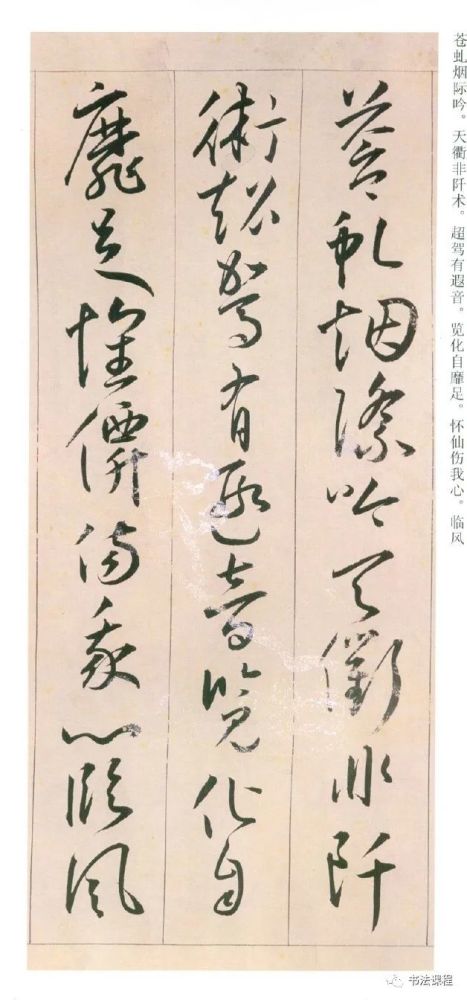 苍虬烟际吟。天衢非阡术。超驾有遐音。览化自靡足。怀仙伤我心。临风
蒼虬烟際吟天衢非阡
術超駕有遐音覽化自
靡足懷僊傷我心臨風
书法课程